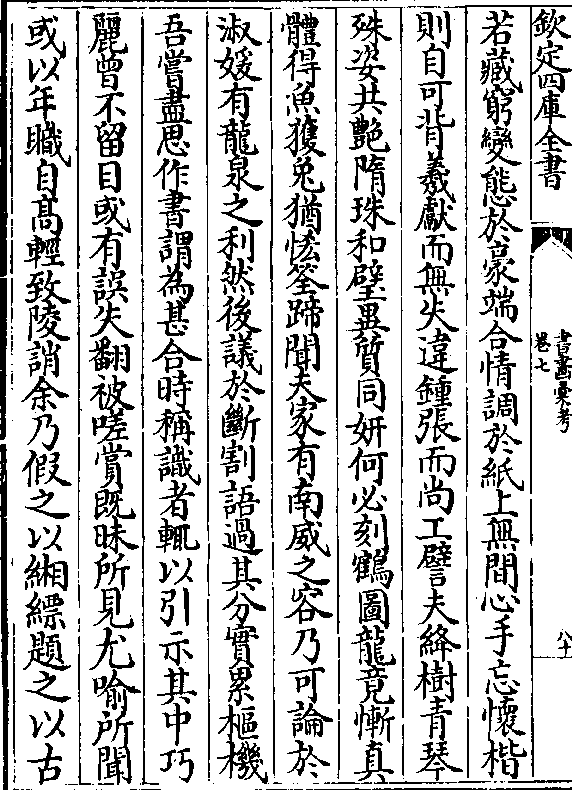 欽定四庫全書
書畫彙考
卷七
八十
若藏窮變態於豪端合情調於紙上無間心手忘懷楷
則自可背羲獻而無失違鍾張而尚工譬夫絳樹青琴
殊姿共艶隋珠和璧異質同妍何必刻鶴圖龍竟慚真
體得魚獲兔猶恡筌蹄聞夫家有南威之容乃可論於
淑媛有龍泉之利然後議於斷割語過其分實累樞機
吾嘗盡思作書謂為甚合時稱識者輒以引示其中巧
麗曾不留目或有誤失翻被嗟賞既昧所見尤喻所聞
或以年職自髙輕致陵誚余乃假之以緗縹題之以古